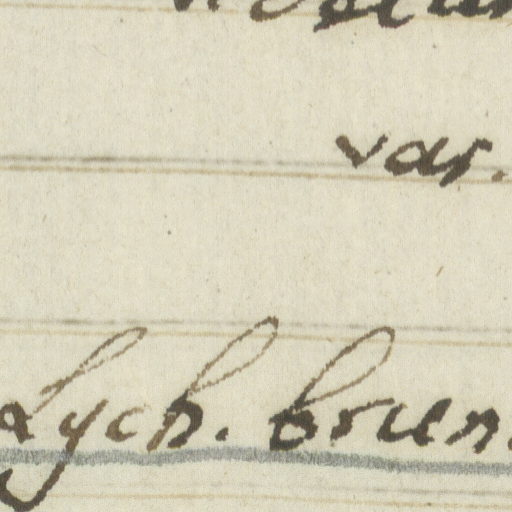 var.
Lych. brun